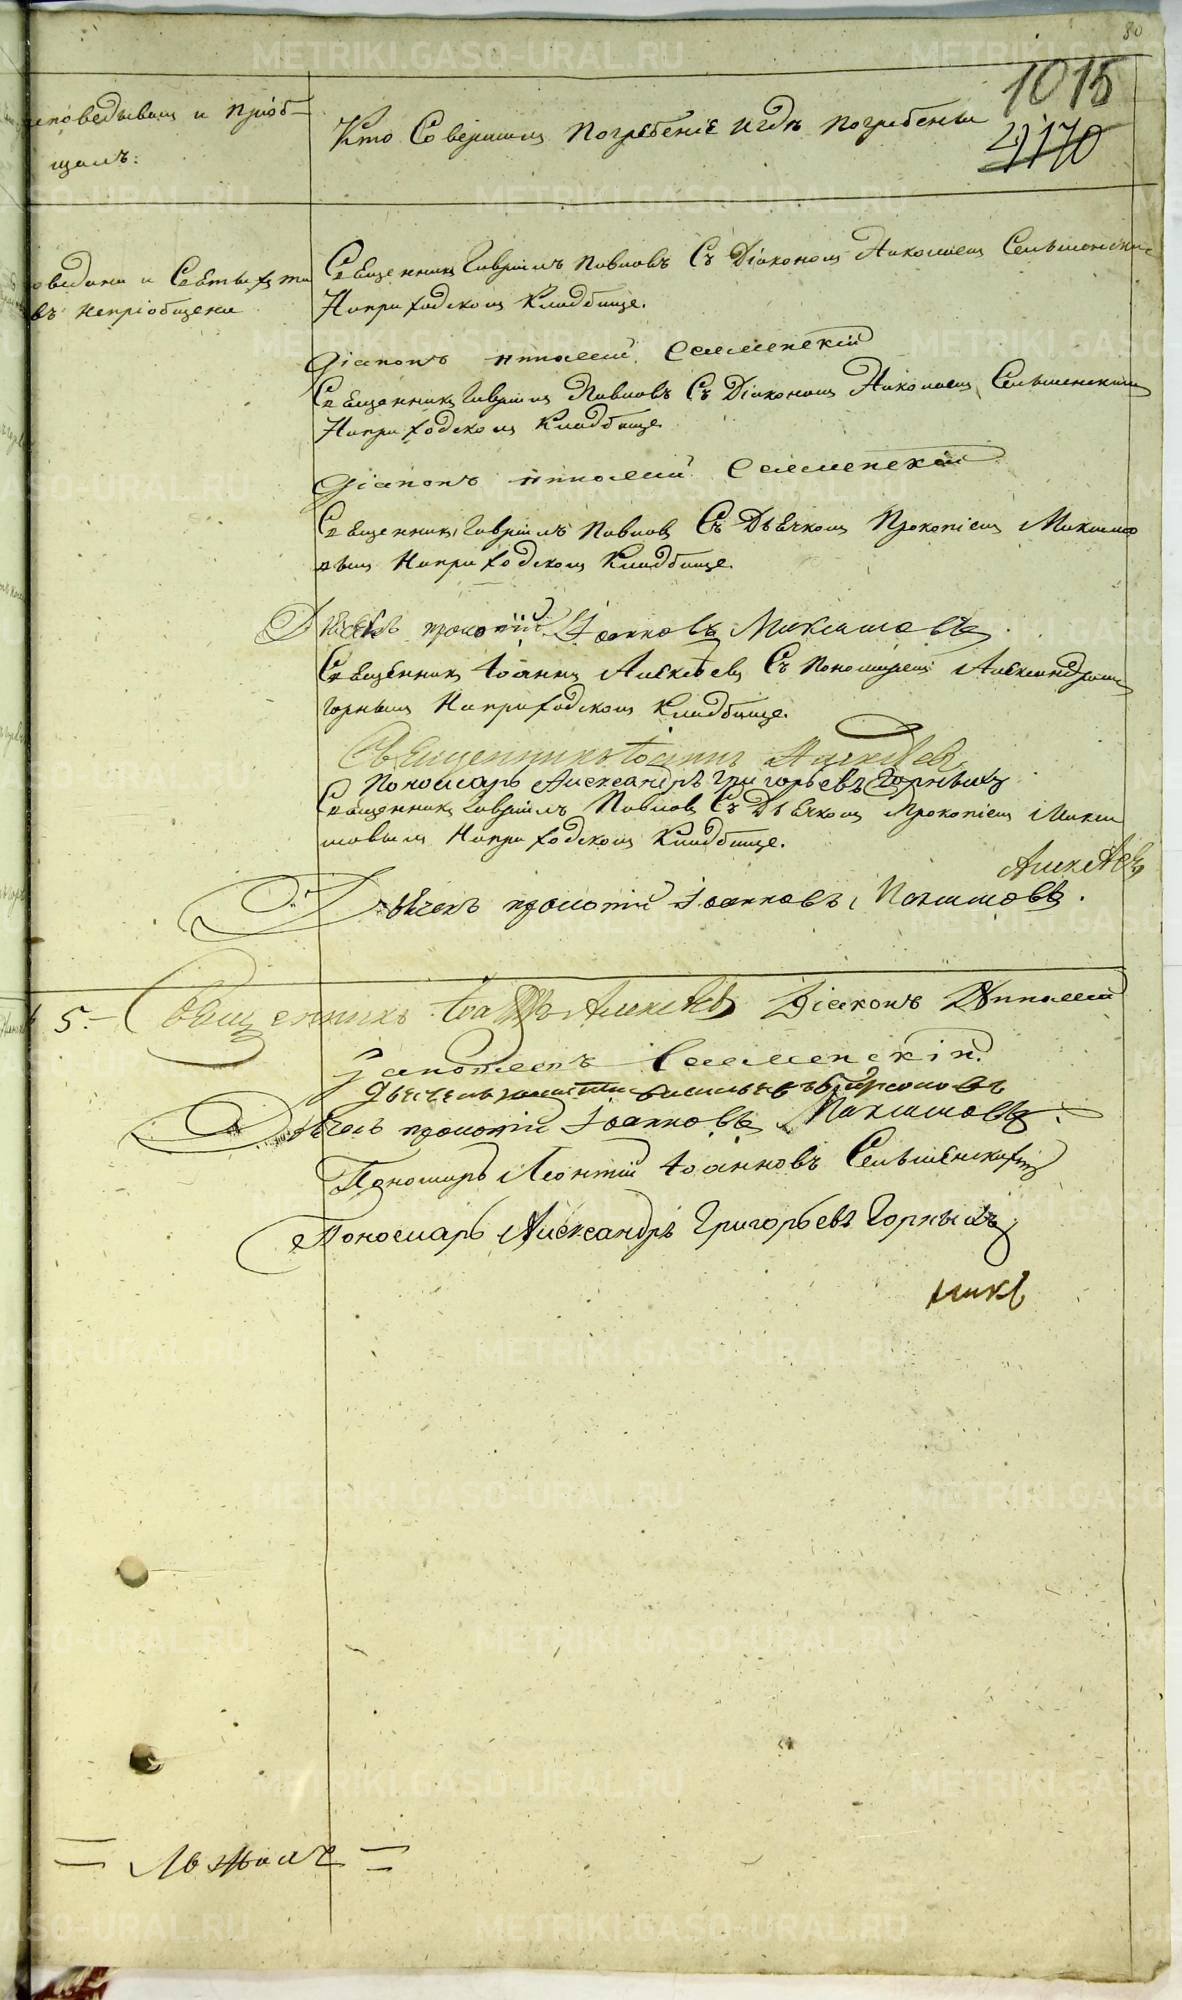 80
1015
4170
исповедывал и приоб-
щалъ:
Кто Совершал Погребение и гдѣ погребены
оведаны и Святых та
въ неприобщены
Священник Гаврiилъ Павловъ Съ Дiаконом Николаем Селменским
На приходском Кладбище.
Дiаконъ Николай Селменскiй
Священник Гаврiил Павловъ Съ Дiаконом Николаем Селменским
На приходском Кладбище
Дiаконъ Николай Селменскiй
Священник Гаврiилъ Павлов Съ Дьячком Прокопiем Максимо
вым На приходском Кладбище.
Дьячекъ прокопiй Iоанновъ Максимовъ
Священник Iоанн Алексѣев Съ Пономарем Александром
Горным На приходском Кладбище.
Священникъ Iоаннъ Алексѣев
Пономарь Александръ Григорьевъ Горныхъ
Священник Гаврiилъ Павлов Съ Дьячком Прокопiем Макси
мовым На приходском Кладбище.
Алексѣевъ
Дьячекъ прокопiй Iоанновъ Максимовъ.
5.- Священникъ Iоаннъ Алексѣевъ Дiаконъ Николай
Селменскiй.
Дьячекъ
Дьячекъ прокопiй Iоанновъ Максимовъ.
Пономарь Леонтiй Iоанновъ Селменских
Пономарь Александръ Григорьевъ Горныхъ
METRIKI.GASO-URAL.RU